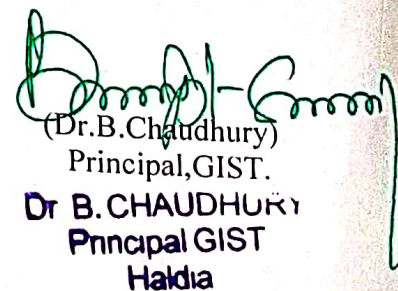 (Dr.B.Chaudhury)
Principal,GIST.
Dr B. CHAUDHURY
Principal GIST
Haldia